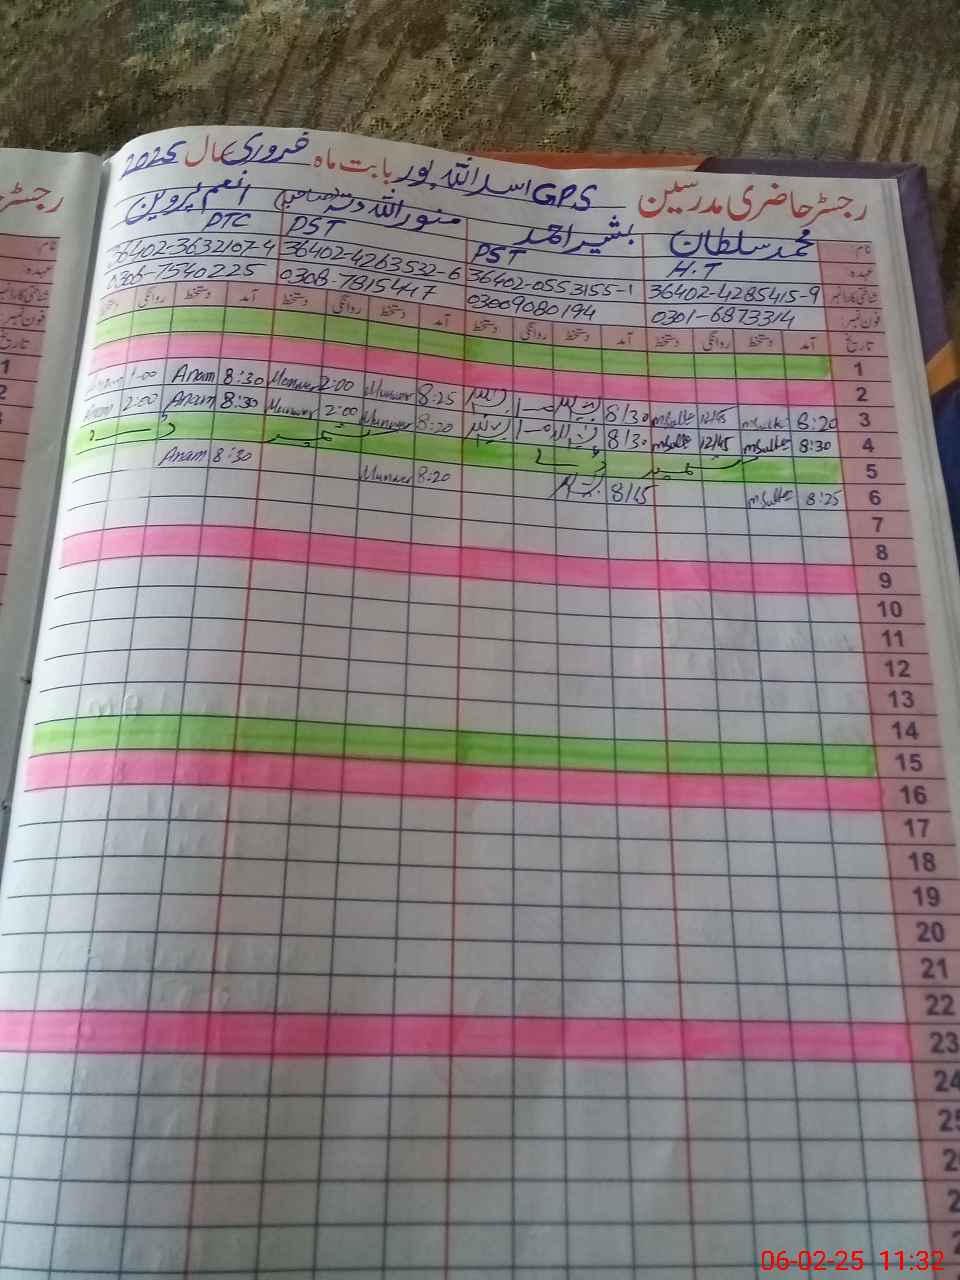 رجسٹر حاضری مدرسین GPS اسد اللہ پور بابت ماہ فروری سال 2025
نام: محمد سلطان بشیر احمد منور اللہ دتہ انعم پروین
عہدہ: H.T PST PST PTC
36402-4285415-9 36402-0553155-1 36402-4263532-6 36402-3632107-4
فون نمبر: 0301-6873314 03009080194 0308-7815417 0306-7540225
تاریخ آمد دستخط روانگی دستخط آمد دستخط روانگی دستخط آمد دستخط روانگی دستخط آمد دستخط روانگی دستخط
1
2
3 8:20 12/45 8/30 8:25 Munwer 2:00 8:30 Anam 1:00
4 8:30 12/45 8/30 8:20 Munwer 2:00 8:30 Anam 2:00 Anam
5 کشمیر ڈے کشمیر ڈے
6 8:25 8/15 8:20 Munwer 8:30 Anam
7
8
9
10
11
12
13
14
15
16
17
18
19
20
21
22
23
24
رجسٹر
1
2
06-02-25 11:32